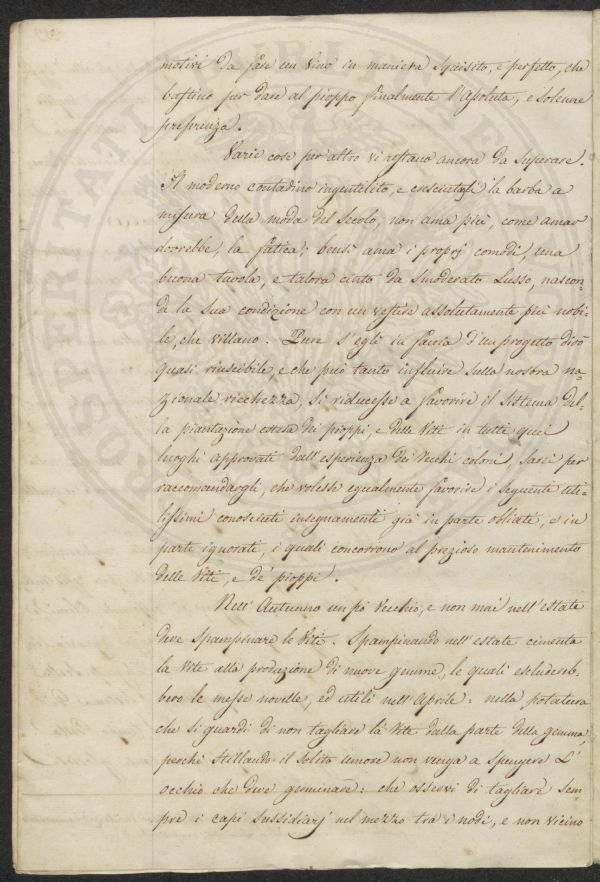 motivi da fare un Vino in maniera squisito, e perfetto, che
bastino per dare al pioppo finalmente l'assoluta, e solenne
preferenza.
Varie cose per altro vi restano ancora da superare.
Il moderno contadino ingentilito, e cresciutagli la barba a
misura della moda del Secolo, non ama più, come amar
dovrebbe, la fatica; bensì ama i proprj comodi, una
buona tavola, e talora cinto da smoderato Lusso, nascon-
de la sua condizione con un vestire assolutamente più nobi-
le, che villano. Pure s'egli in faccia d'un progetto dirò
quasi riuscibile, e che può tanto influire sulla nostra na-
zionale ricchezza, si riducesse a favorire il Sistema del-
la piantazione estesa dei pioppi, e delle Viti in tutti quei
luoghi approvati dall'esperienza dei Vecchi coloni, sarei per
raccomandargli, che volesse egualmente favorire i seguenti uti-
lissimi conosciuti insegnamenti già in parte obliati, e in
parte ignorati, i quali concorrono al prezioso mantenimento
delle Viti, e de' pioppi.
Nell'Autunno un pò Vecchio, e non mai nell'estate
deve spampinare le Viti. Spampinando nell'estate cimenta
la Vite alla produzione di nuove gemme, le quali escludereb-
bero le messe novelle, ed utili nell'Aprile: nella potatura
che si guardi di non tagliare la Vite dalla parte della gemma,
perchè stillando il solito umore non venga a spengere L'
occhio che deve germinare: che osservi di tagliare sem
pre i capi sussidiarj nel mezzo tra i nodi, e non vicino